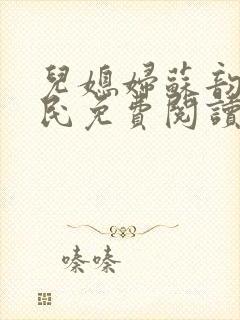 兒媳婦蘇韵
民免費閱讀
嗪嗪